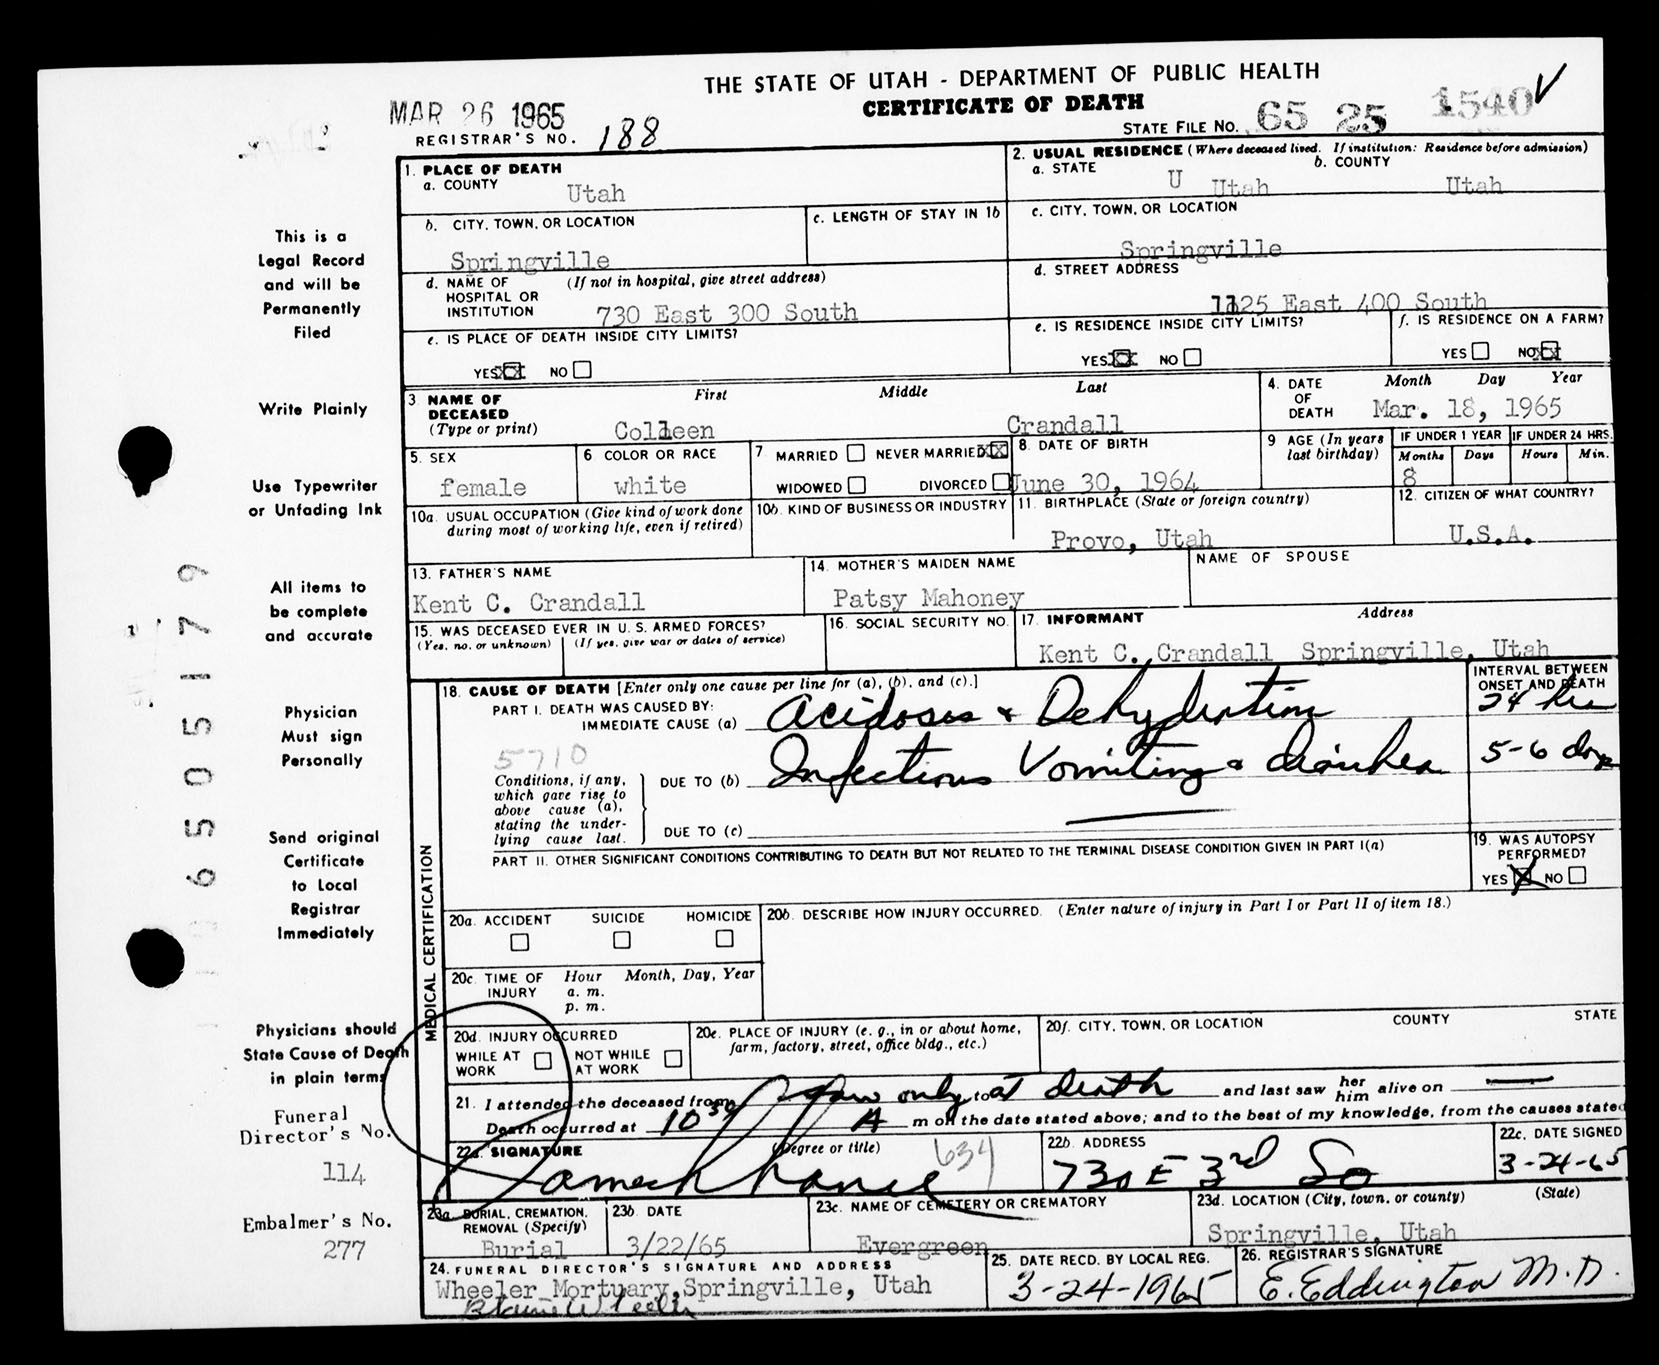 THE STATE OF UTAH - DEPARTMENT OF PUBLIC HEALTH
CERTIFICATE OF DEATH
MAR 26 1965
REGISTRAR'S NO. 188
STATE FILE NO. 65 25 1540
This is a
Legal Record
and will be
Permanently
Filed
Write Plainly
Use Typewriter
or Unfading Ink
All items to
be complete
and accurate
Physician
Must sign
Personally
Send original
Certificate
to Local
Registrar
Immediately
Physicians should
State Cause of Death
in plain terms
Funeral
Director's No.
114
Embalmer's No.
277
6505179
1. PLACE OF DEATH
a. COUNTY Utah
2. USUAL RESIDENCE (Where deceased lived. If institution: Residence before admission)
a. STATE U Utah b. COUNTY Utah
b. CITY, TOWN, OR LOCATION Springville
c. LENGTH OF STAY IN 1b
c. CITY, TOWN, OR LOCATION Springville
d. NAME OF HOSPITAL OR INSTITUTION (If not in hospital, give street address) 730 East 300 South
d. STREET ADDRESS 1125 East 400 South
e. IS PLACE OF DEATH INSIDE CITY LIMITS? YES NO
e. IS RESIDENCE INSIDE CITY LIMITS? YES NO
f. IS RESIDENCE ON A FARM? YES NO
3 NAME OF DECEASED (Type or print) First Middle Last
Colleen Crandall
4. DATE OF DEATH Month Day Year
Mar. 18, 1965
5. SEX female
6 COLOR OR RACE white
7 MARRIED NEVER MARRIED
WIDOWED DIVORCED
8. DATE OF BIRTH June 30, 1964
9 AGE (In years last birthday)
IF UNDER 1 YEAR Months Days 8
IF UNDER 24 HRS. Hours Min.
10a. USUAL OCCUPATION (Give kind of work done during most of working life, even if retired)
10b. KIND OF BUSINESS OR INDUSTRY
11. BIRTHPLACE (State or foreign country) Provo, Utah
12. CITIZEN OF WHAT COUNTRY? U.S.A.
13. FATHER'S NAME Kent C. Crandall
14. MOTHER'S MAIDEN NAME Patsy Mahoney
NAME OF SPOUSE
15. WAS DECEASED EVER IN U.S. ARMED FORCES?
(Yes, no, or unknown) (If yes, give war or dates of service)
16. SOCIAL SECURITY NO.
17. INFORMANT Address
Kent C. Crandall Springville, Utah
MEDICAL CERTIFICATION
18. CAUSE OF DEATH [Enter only one cause per line for (a), (b), and (c).]
INTERVAL BETWEEN ONSET AND DEATH
PART I. DEATH WAS CAUSED BY:
IMMEDIATE CAUSE (a) Acidosis & Dehydration 24 hrs
5710
Conditions, if any, which gave rise to above cause (a), stating the underlying cause last.
DUE TO (b) Infectious Vomiting & diarrhea 5-6 days
DUE TO (c)
PART II. OTHER SIGNIFICANT CONDITIONS CONTRIBUTING TO DEATH BUT NOT RELATED TO THE TERMINAL DISEASE CONDITION GIVEN IN PART I(a)
19. WAS AUTOPSY PERFORMED?
YES NO
20a. ACCIDENT SUICIDE HOMICIDE
20b. DESCRIBE HOW INJURY OCCURRED. (Enter nature of injury in Part I or Part II of item 18.)
20c. TIME OF INJURY Hour Month, Day, Year
a. m.
p. m.
20d. INJURY OCCURRED
WHILE AT WORK NOT WHILE AT WORK
20e. PLACE OF INJURY (e. g., in or about home, farm, factory, street, office bldg., etc.)
20f. CITY, TOWN, OR LOCATION COUNTY STATE
21. I attended the deceased from saw only at death to and last saw her him alive on
Death occurred at 10 30 A m on the date stated above; and to the best of my knowledge, from the causes stated
22a. SIGNATURE (Degree or title) 634
22b. ADDRESS 730 E 3rd So
22c. DATE SIGNED 3-24-65
23a. BURIAL, CREMATION, REMOVAL (Specify) Burial
23b. DATE 3/22/65
23c. NAME OF CEMETERY OR CREMATORY Evergreen
23d. LOCATION (City, town, or county) (State)
Springville, Utah
24. FUNERAL DIRECTOR'S SIGNATURE AND ADDRESS
Wheeler Mortuary, Springville, Utah
25. DATE RECD. BY LOCAL REG. 3-24-1965
26. REGISTRAR'S SIGNATURE E. Eddington M.D.